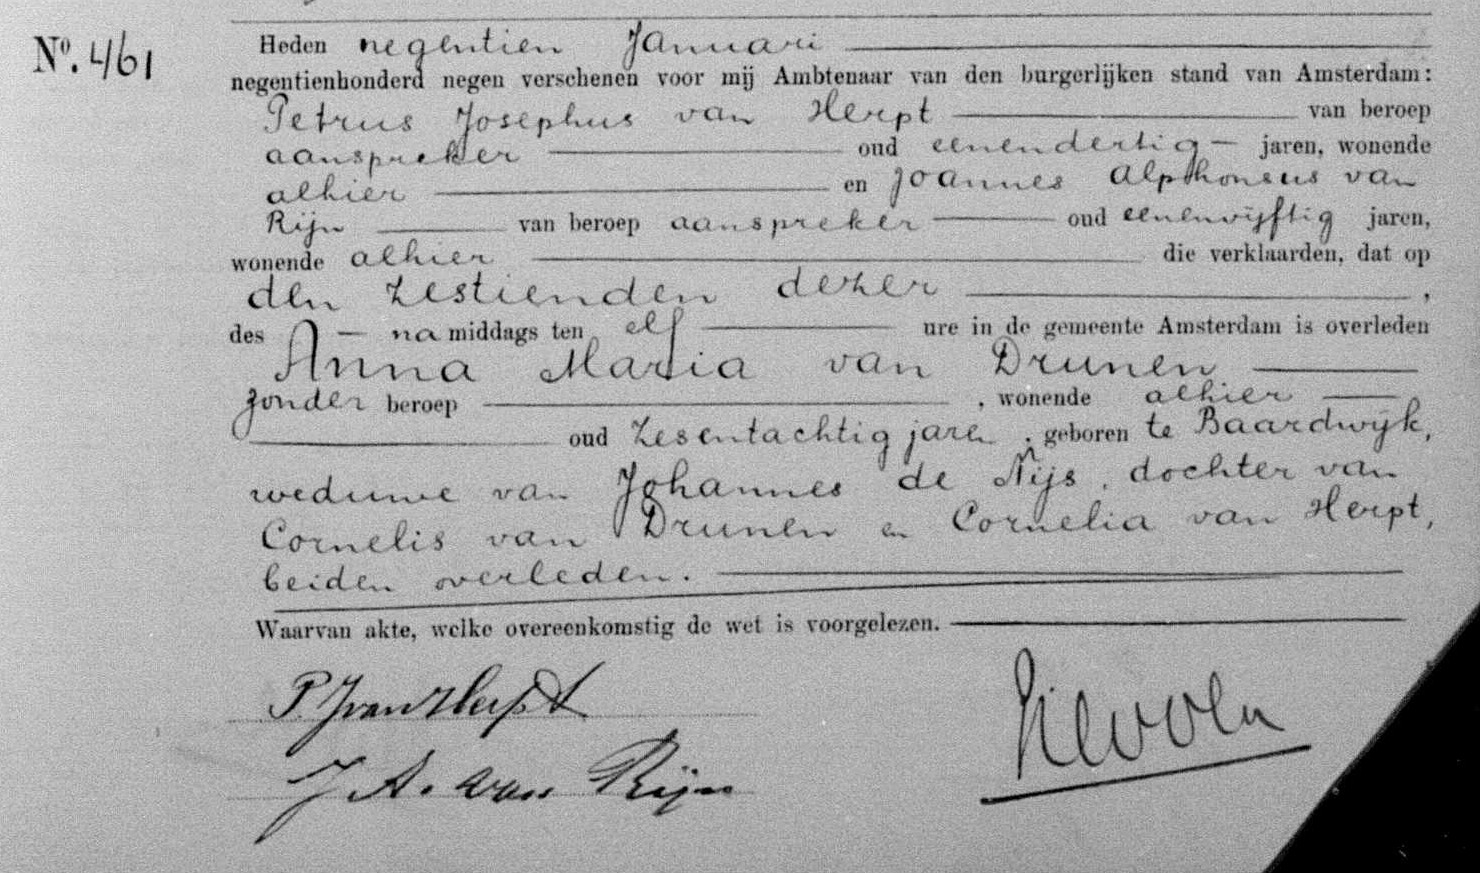 Nº. 461
Heden negentien Januari
negentienhonderd negen verschenen voor mij Ambtenaar van den burgerlijken stand van Amsterdam:
Petrus Josephus van Herpt van beroep
aanspreker oud eenendertig jaren, wonende
alhier en Joannes Alphonsus van
Rijn van beroep aanspreker oud eenenvijftig jaren,
wonende alhier die verklaarden, dat op
den zestienden dezer,
des na middags ten elf ure in de gemeente Amsterdam is overleden
Anna Maria van Drunen
zonder beroep, wonende alhier
oud zesentachtig jaren, geboren te Baardwijk,
weduwe van Johannes de Nijs, dochter van
Cornelis van Drunen en Cornelia van Herpt,
beiden overleden.
Waarvan akte, welke overeenkomstig de wet is voorgelezen.
P. J van Herpt
J. A. van Rijn